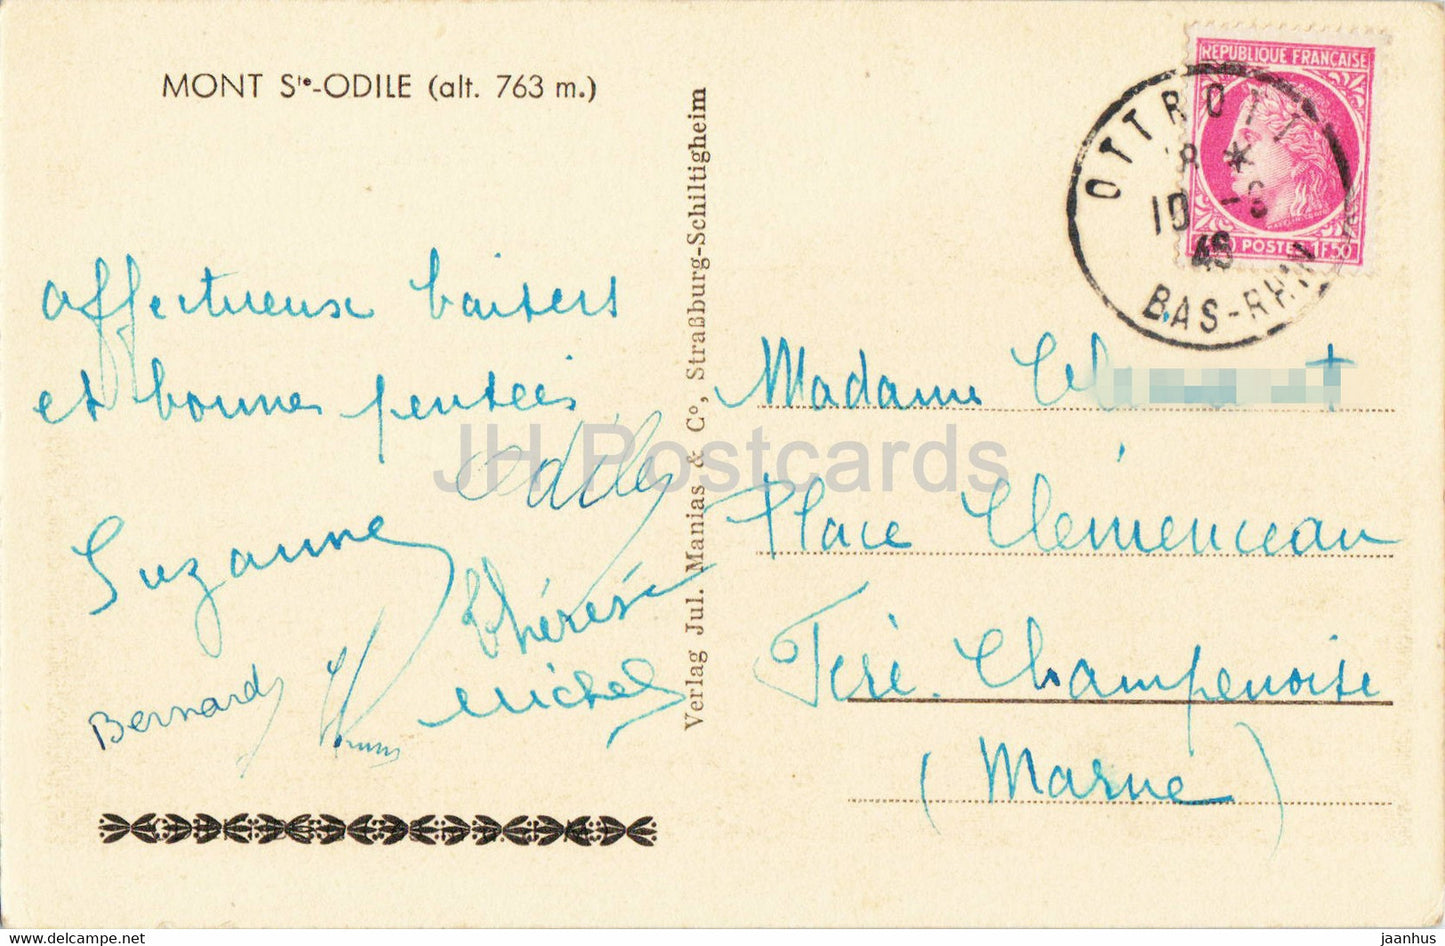 MONT Ste-ODILE (alt. 763 m.)
affectueux baisers
et bonnes pensées
Odile
Suzanne
Thérèse
Bernard
Michel
Verlag Jul. Manias & Co, Straßburg-Schiltigheim
REPUBLIQUE FRANÇAISE
POSTES 1F.50
OTTROTT
18 *
10 -8
46
BAS-RHIN
Madame
Place Clémenceau
Fère. Champenoise
(Marne)
JH Postcards
jaanhus